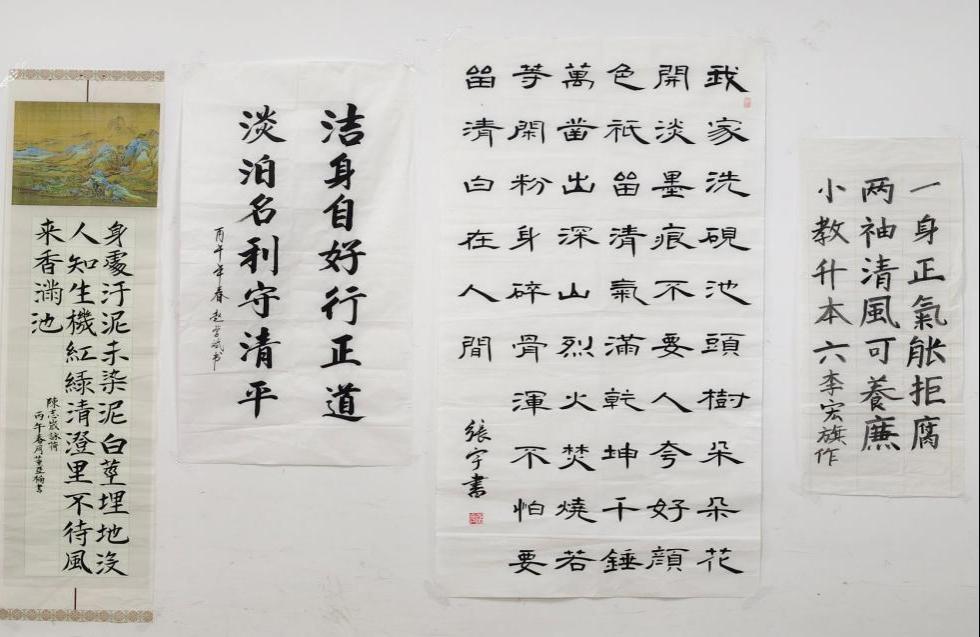 身處汙泥未染泥白莖埋地没
人知生機紅綠清澄里不待風
来香滿池
陳志歲詠荷
丙午春月董亞楠書
洁身自好行正道
淡泊名利守清平
丙午年春 赵学斌书
我家洗硯池頭樹朵朵花
開淡墨痕不要人夸好顏
色祇畱清氣滿乾坤千錘
萬凿出深山烈火焚燒若
等閑粉身碎骨渾不怕要
畱清白在人間
張宇書
一身正氣能拒腐
两袖清風可養廉
小教升本六李宏旗作